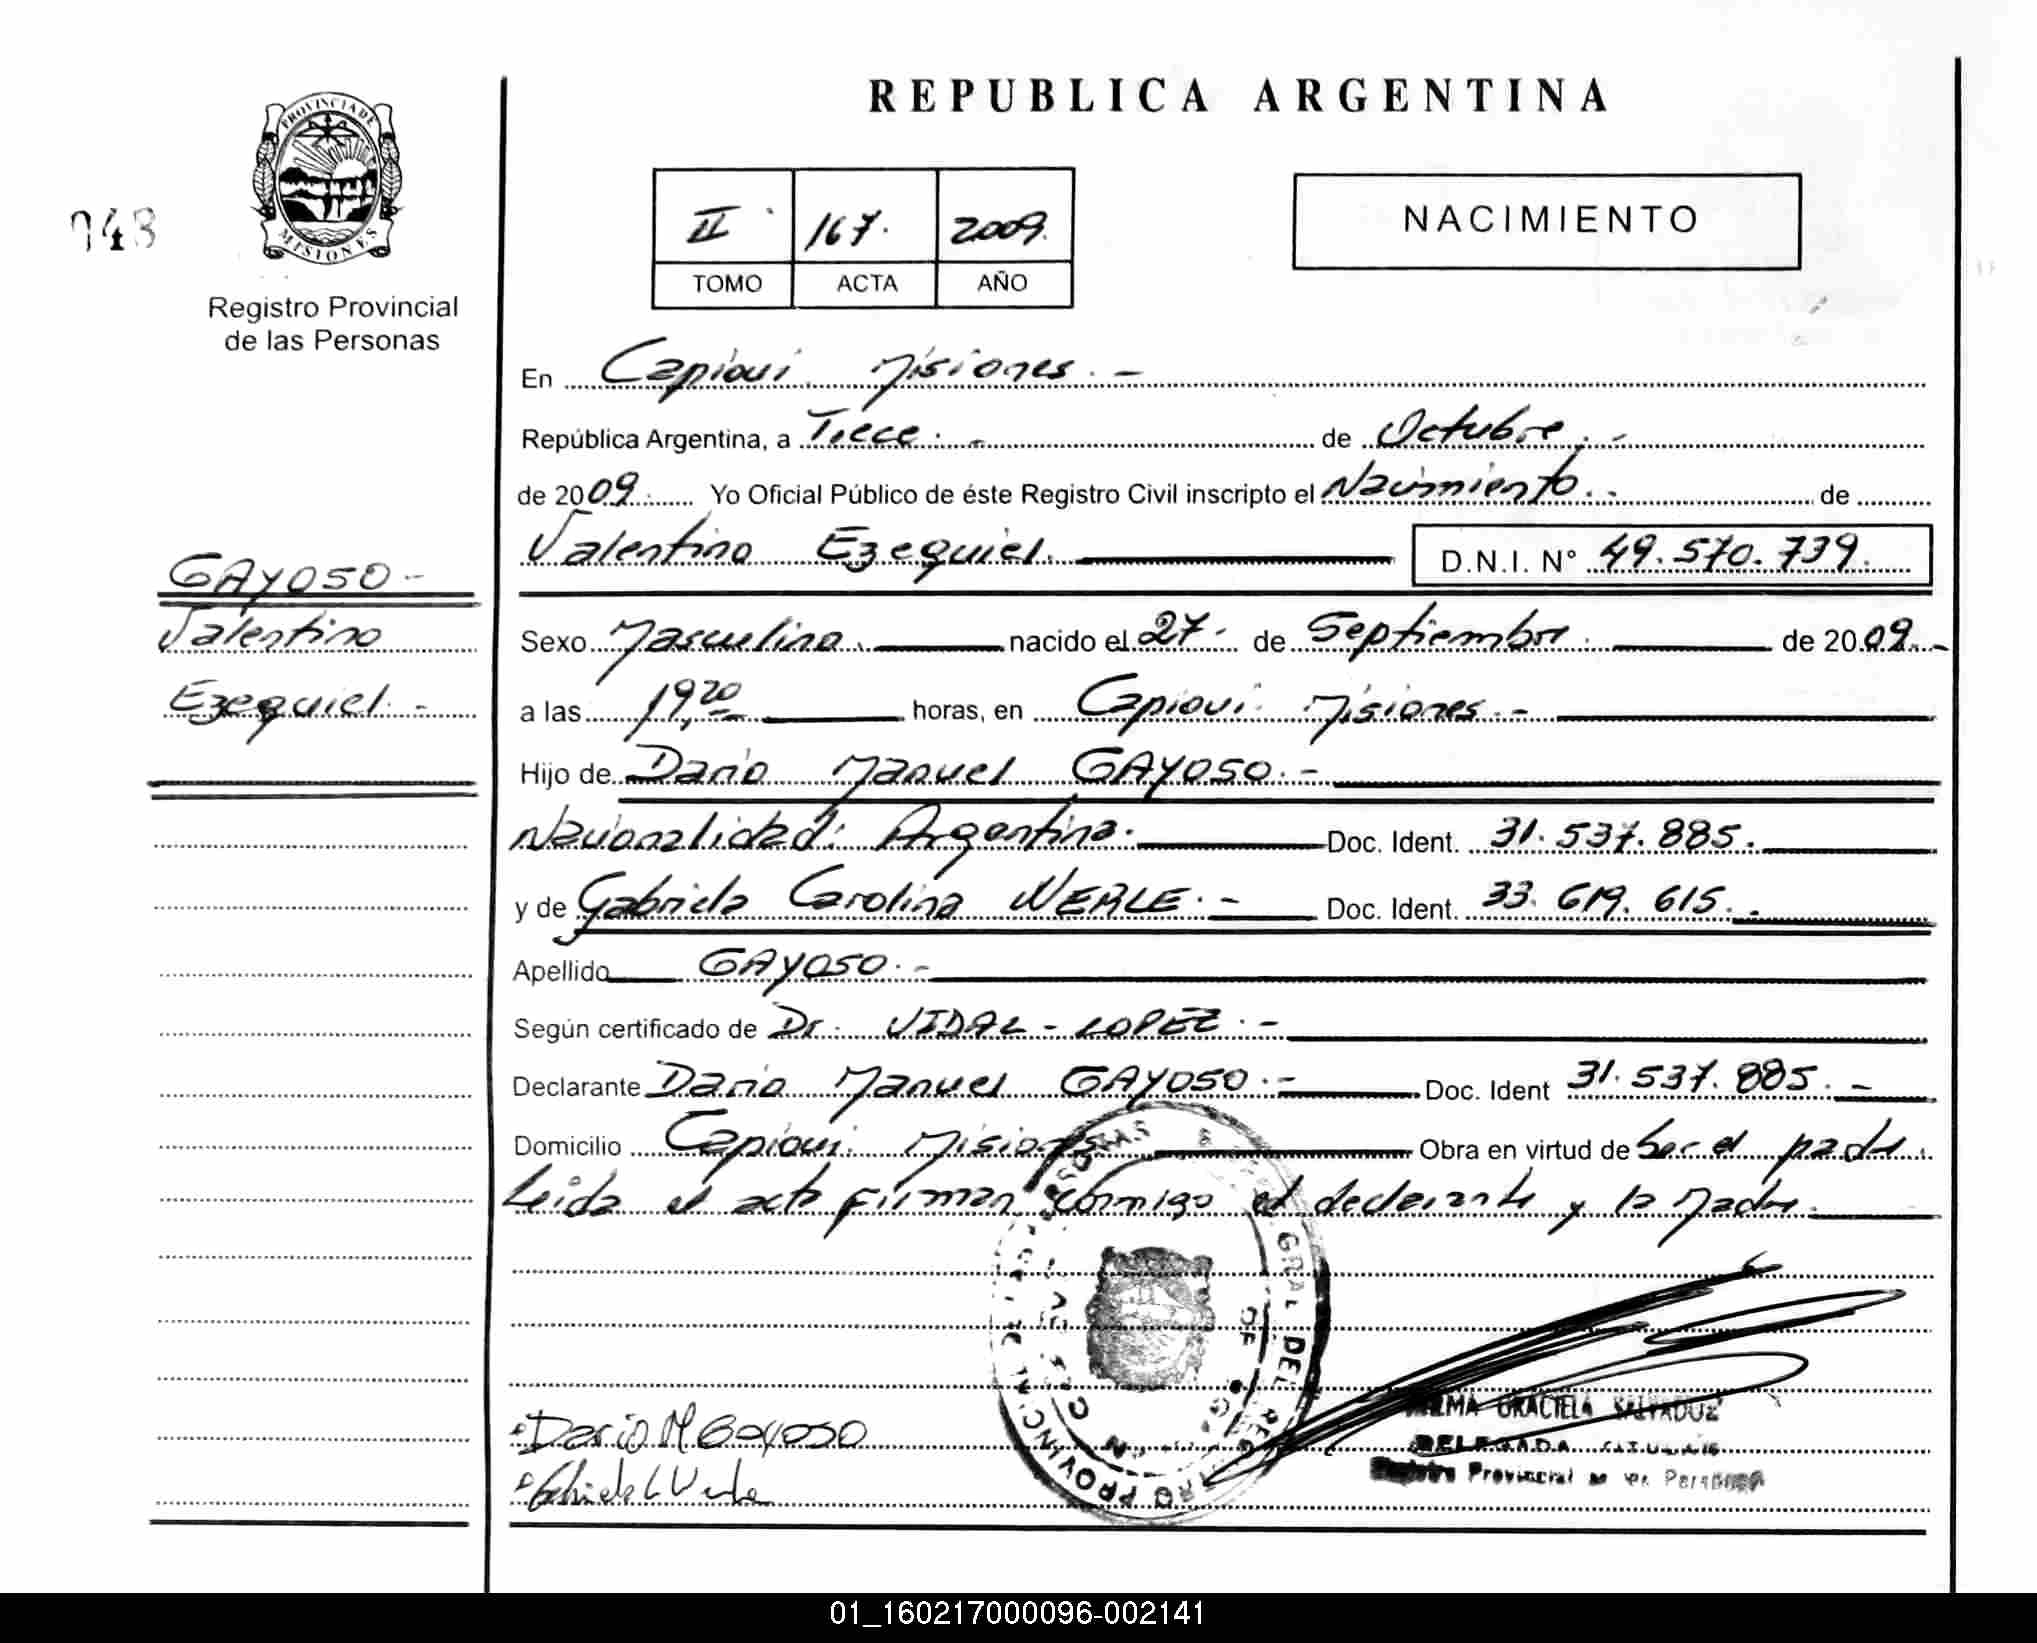 REPUBLICA ARGENTINA
PROVINCIA DE
MISIONES
Registro Provincial
de las Personas
II 167. 2009.
TOMO ACTA AÑO
NACIMIENTO
En Capiovi Misiones.-
República Argentina, a Trece.- de Octubre.-
de 2009. Yo Oficial Público de éste Registro Civil inscripto el Nacimiento.- de
Valentino Ezequiel. D.N.I. N° 49.570.739.
GAYOSO-
Valentino
Ezequiel.-
Sexo Masculino. nacido el 27. de Septiembre. de 2009.-
a las 19,20 horas, en Capiovi Misiones.-
Hijo de Dario Manuel GAYOSO.-
Nacionalidad: Argentina. Doc. Ident. 31.537.885.
y de Gabriela Carolina WERLE.- Doc. Ident. 33.619.615.
Apellido GAYOSO.-
Según certificado de Dr. VIDAL-LOPEZ.-
Declarante Dario Manuel GAYOSO.- Doc. Ident 31.537.885.-
Domicilio Capiovi Misiones Obra en virtud de Ser el padre.
Leida el acta firman conmigo el declarante y la Madre.
Dario M Gayoso
GRACIELA
DELEGADA TITULAR
Registro Provincial de las Personas
01_160217000096-002141